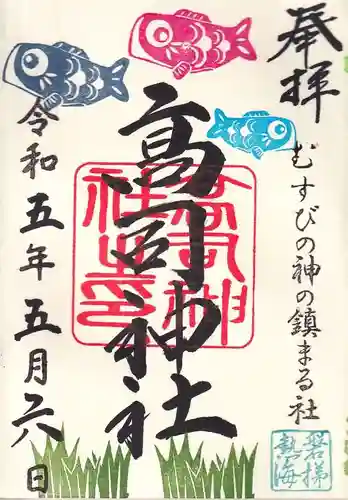 奉拝
むすびの神の鎮まる社
高司神社
令和五年五月六日
磐梯熱海